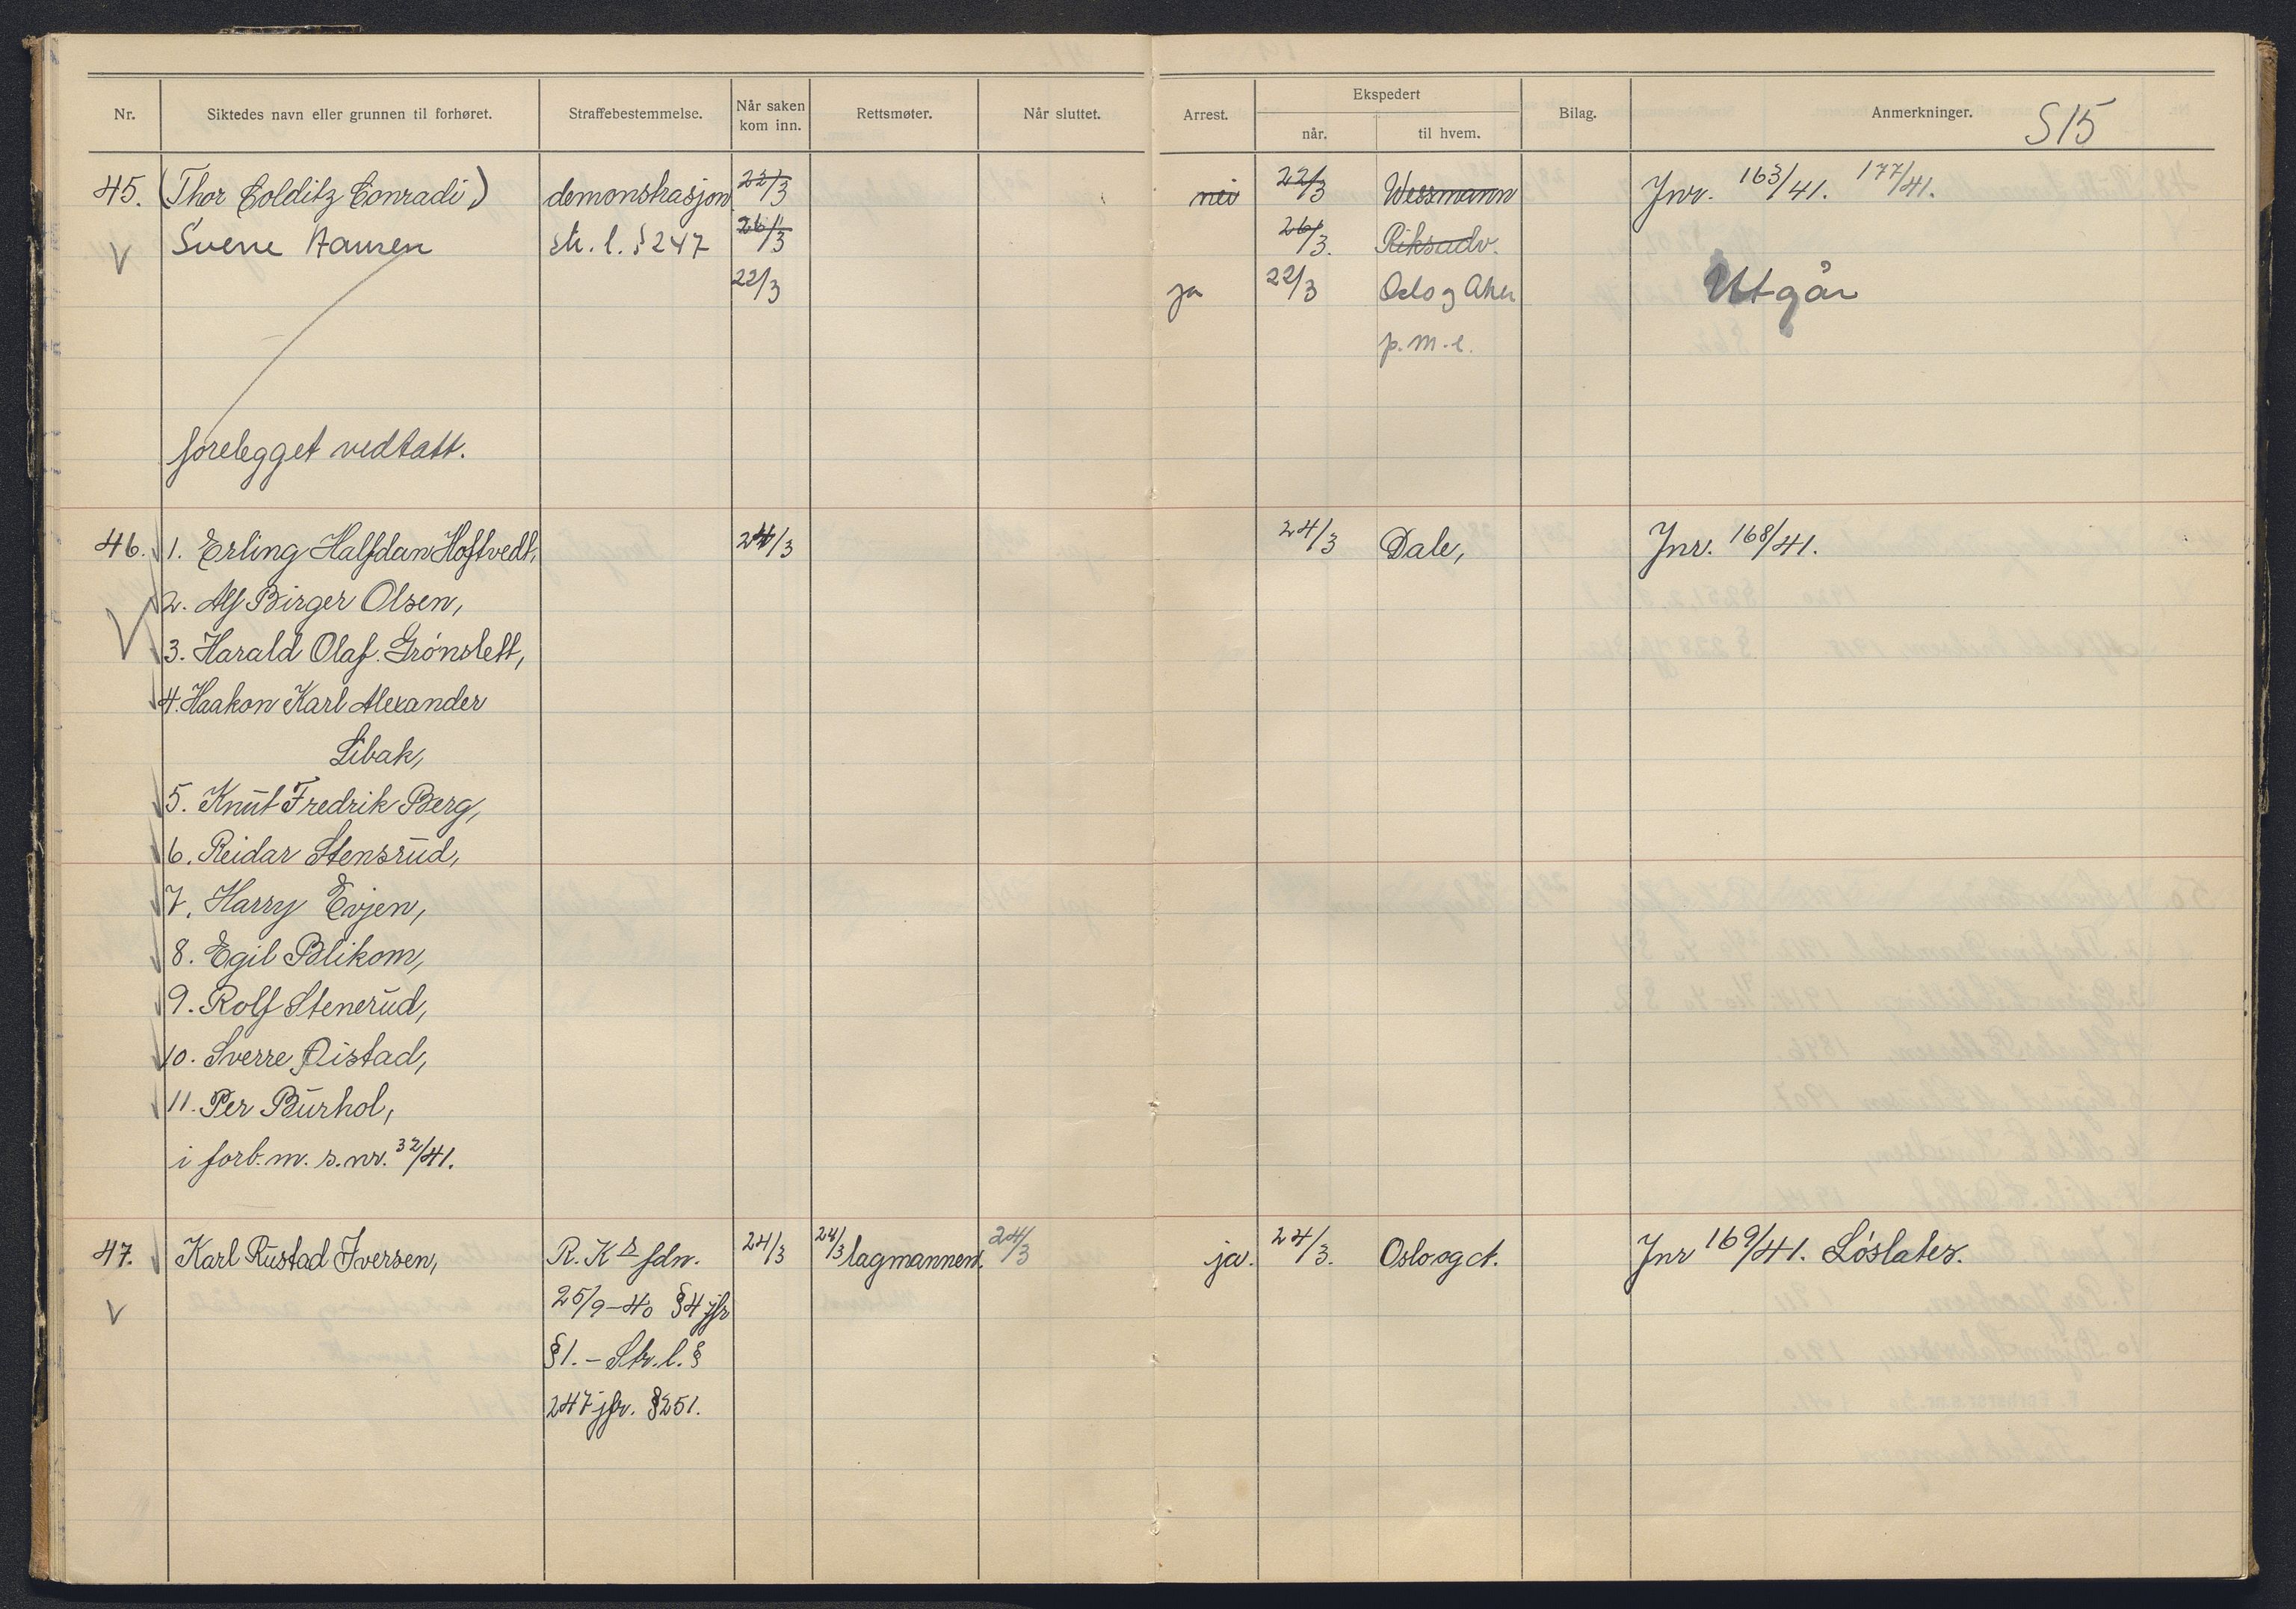 Nr. Siktedes navn eller grunnen til forhøret. Straffebestemmelse. Når saken kom inn. Rettsmøter. Når sluttet. Arrest. Ekspedert når. til hvem. Bilag. Anmerkninger. S15
45. (Thor Colditz Conradi) demonstrasjon 22/3 nei 22/3 Wessmann Jnr. 163/41. 177/41.
V Sverre Hansen str. l. § 247 26/3 26/3. Riksadv.
22/3 ja 22/3 Oslo og Aker Utgår
p.m.e.
forelegget vedtatt.
46. 1. Erling Halfdan Hoftvedt, 24/3 24/3 Dale, Jnr. 168/41.
2. Alf Birger Olsen,
V 3. Harald Olaf Grónslett,
4. Haakon Karl Alexander
Libak,
5. Knut Fredrik Berg,
6. Reidar Stensrud,
7. Harry Evjen,
8. Egil Blikom,
9. Rolf Stenerud,
10. Sverre Qistad,
11. Per Burhol,
i forb. m. s. nr. 32/41.
47. Karl Rustad Iversen, R. Ks fdn. 24/3 24/3 lagmannen. 24/3 ja. 24/3. Oslo og ct. Jnr 169/41. Lóslates.
V 25/9-40 § 4 jfr
§ 1. - Str. l. §
247 jfr. § 251.